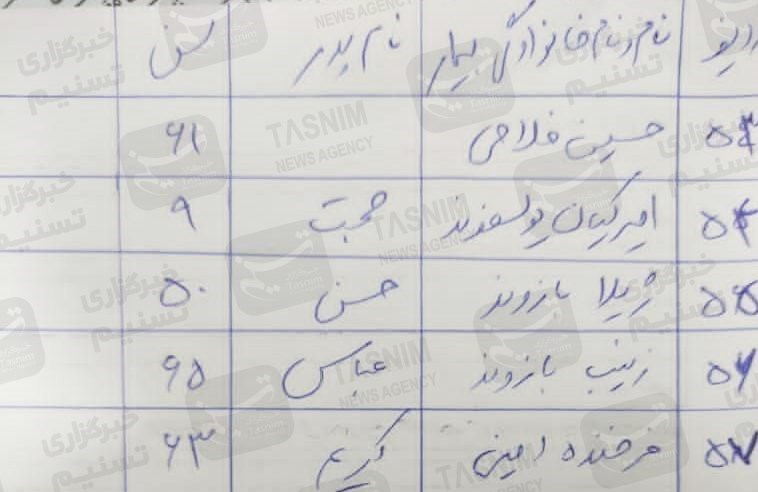 ردیف نام و نام خانوادگی بیمار نام پدر سن
۵۳ حسین فلاحی ۶۱
۵۴ امیر کیان یوسفوند حجت ۹
۵۵ ژیلا بازوند حسن ۵۰
۵۶ زینب بازوند عباس ۶۵
۵۷ فرخنده امینی کریم ۶۳
خبرگزاری تسنیم
TASNIM
NEWS AGENCY